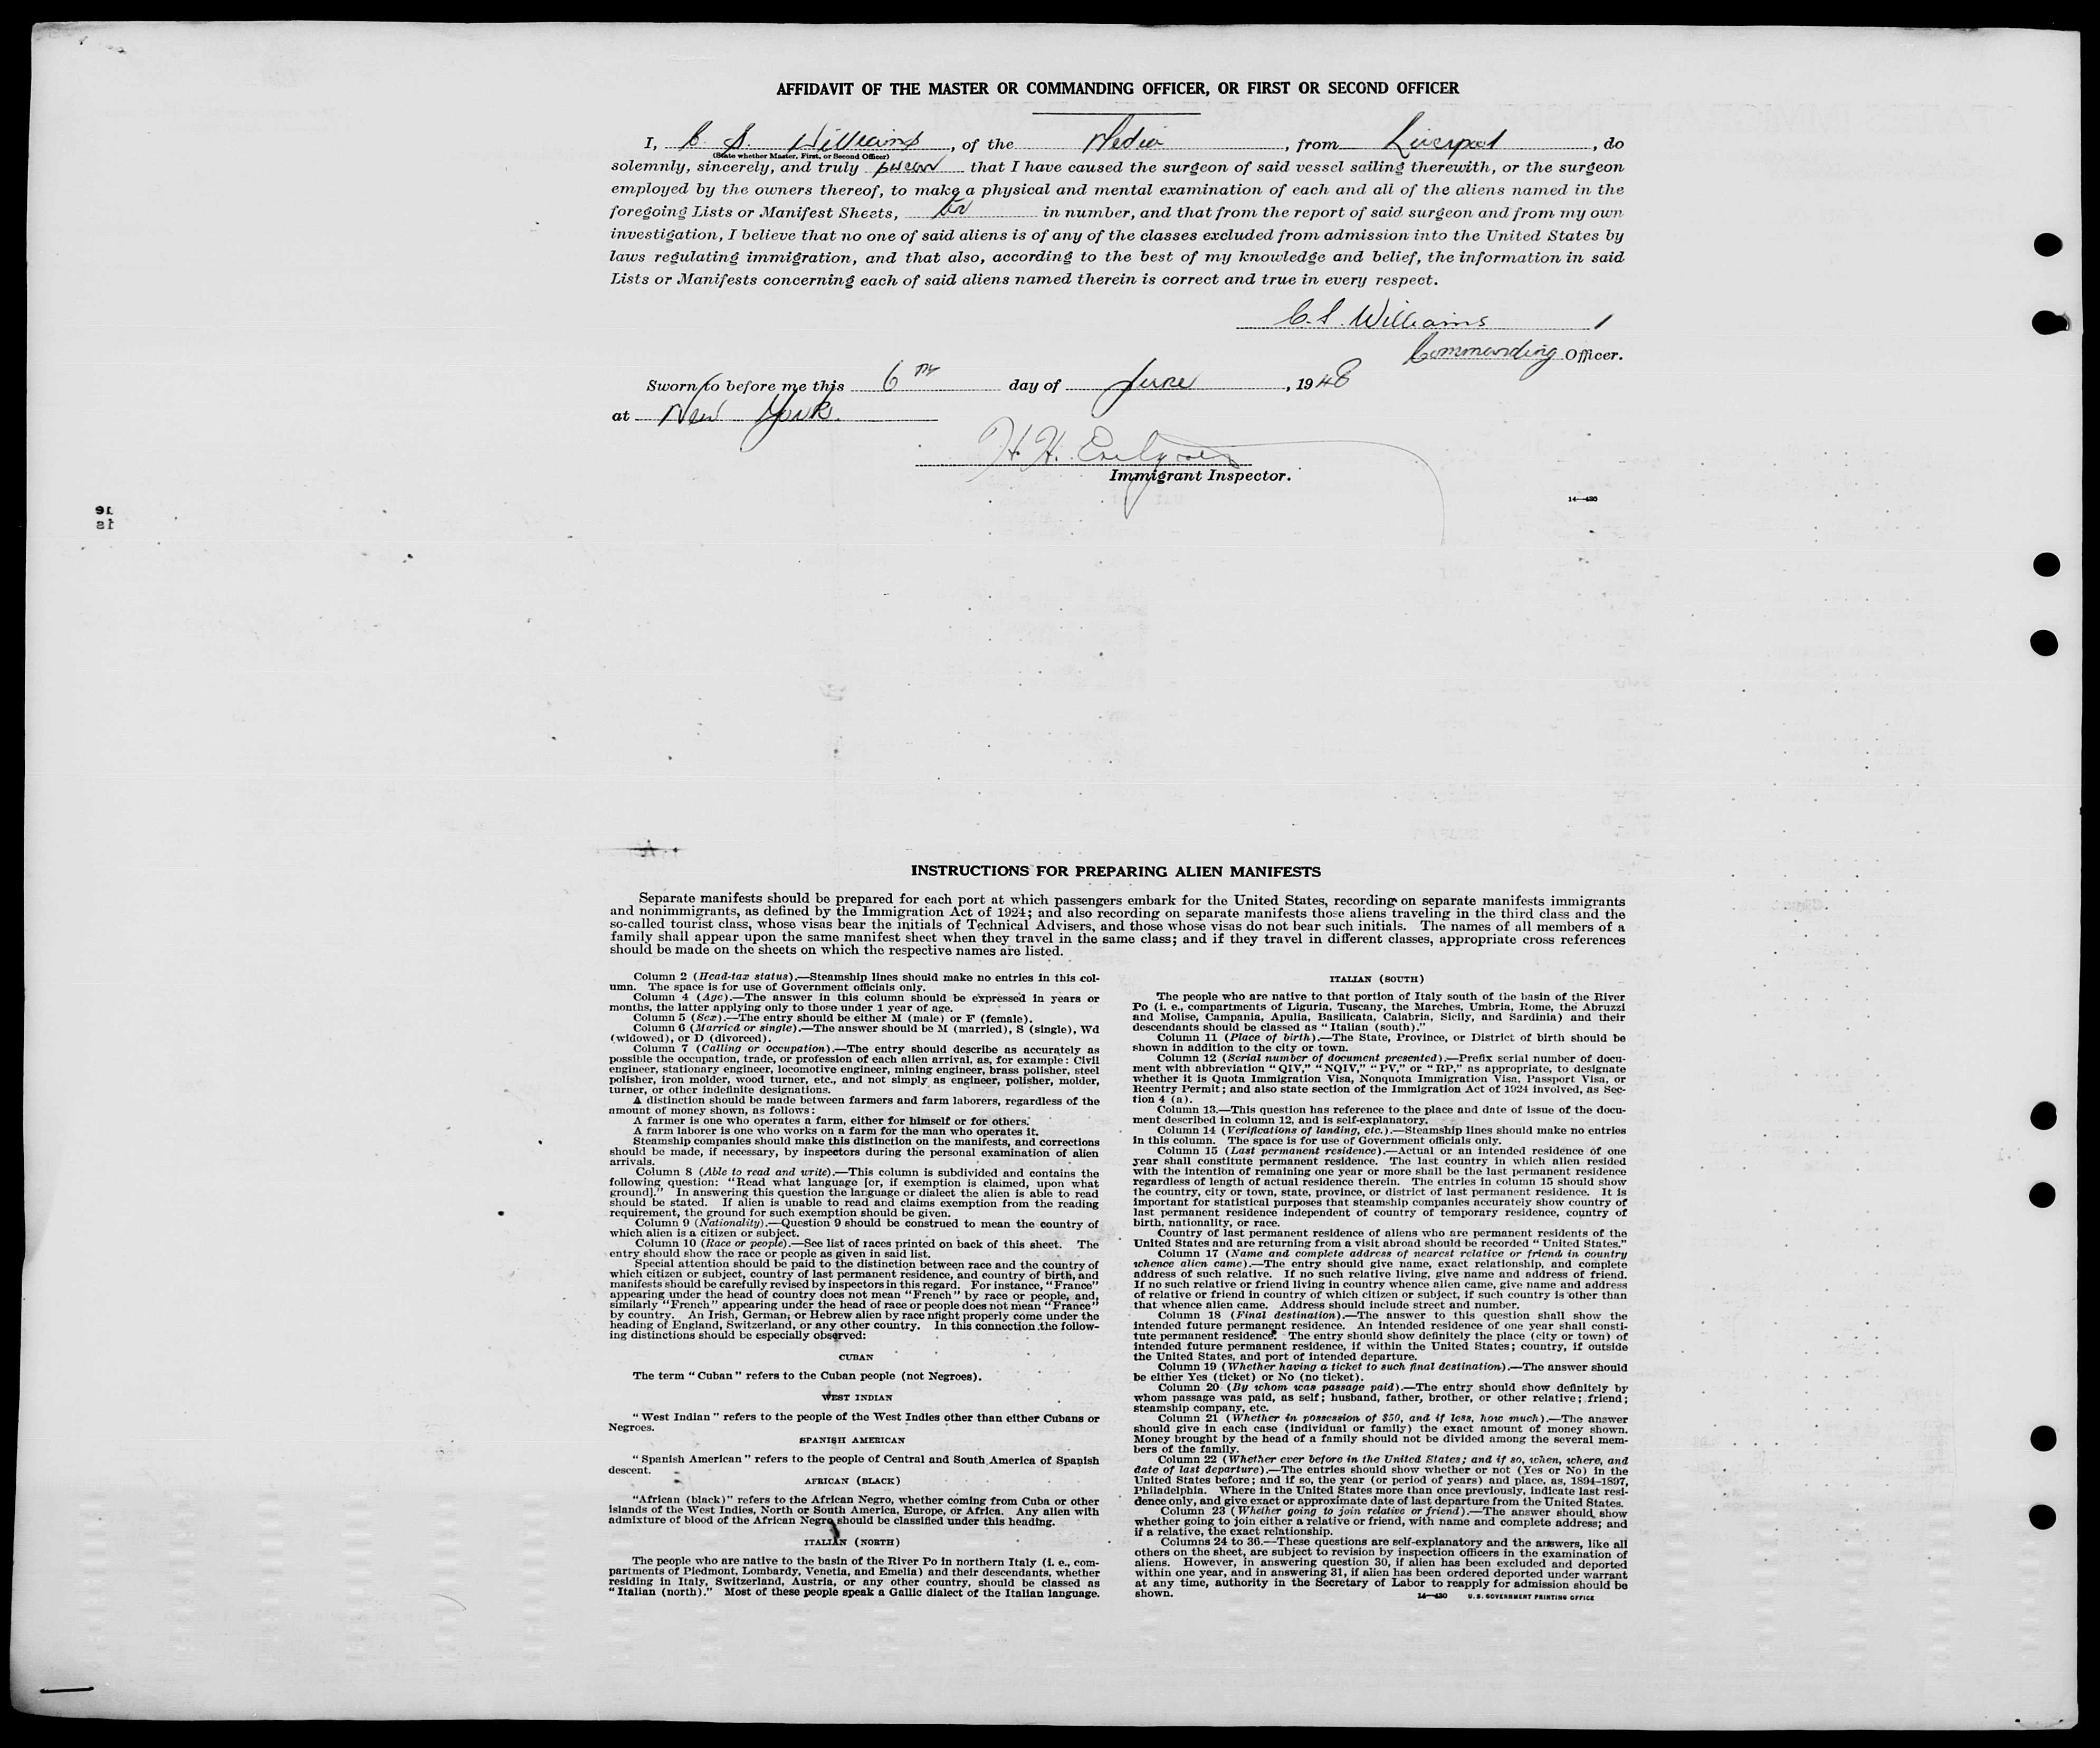 AFFIDAVIT OF THE MASTER OR COMMANDING OFFICER, OR FIRST OR SECOND OFFICER
I, C. S. Williams, of the Media, from Liverpool, do
(State whether Master, First, or Second Officer)
solemnly, sincerely, and truly swear that I have caused the surgeon of said vessel sailing therewith, or the surgeon
employed by the owners thereof, to make a physical and mental examination of each and all of the aliens named in the
foregoing Lists or Manifest Sheets, in number, and that from the report of said surgeon and from my own
investigation, I believe that no one of said aliens is of any of the classes excluded from admission into the United States by
laws regulating immigration, and that also, according to the best of my knowledge and belief, the information in said
Lists or Manifests concerning each of said aliens named therein is correct and true in every respect.
C. S. Williams
Commanding Officer.
Sworn to before me this 6TH day of June, 1948
at New York.
H. H.
Immigrant Inspector.
14—430
INSTRUCTIONS FOR PREPARING ALIEN MANIFESTS
Separate manifests should be prepared for each port at which passengers embark for the United States, recording on separate manifests immigrants
and nonimmigrants, as defined by the Immigration Act of 1924; and also recording on separate manifests those aliens traveling in the third class and the
so-called tourist class, whose visas bear the initials of Technical Advisers, and those whose visas do not bear such initials. The names of all members of a
family shall appear upon the same manifest sheet when they travel in the same class; and if they travel in different classes, appropriate cross references
should be made on the sheets on which the respective names are listed.
Column 2 (Head-tax status).—Steamship lines should make no entries in this col-
umn. The space is for use of Government officials only.
Column 4 (Age).—The answer in this column should be expressed in years or
months, the latter applying only to those under 1 year of age.
Column 5 (Sex).—The entry should be either M (male) or F (female).
Column 6 (Married or single).—The answer should be M (married), S (single), Wd
(widowed), or D (divorced).
Column 7 (Calling or occupation).—The entry should describe as accurately as
possible the occupation, trade, or profession of each alien arrival, as, for example: Civil
engineer, stationary engineer, locomotive engineer, mining engineer, brass polisher, steel
polisher, iron molder, wood turner, etc., and not simply as engineer, polisher, molder,
turner, or other indefinite designations.
A distinction should be made between farmers and farm laborers, regardless of the
amount of money shown, as follows:
A farmer is one who operates a farm, either for himself or for others.
A farm laborer is one who works on a farm for the man who operates it.
Steamship companies should make this distinction on the manifests, and corrections
should be made, if necessary, by inspectors during the personal examination of alien
arrivals.
Column 8 (Able to read and write).—This column is subdivided and contains the
following question: "Read what language [or, if exemption is claimed, upon what
ground]." In answering this question the language or dialect the alien is able to read
should be stated. If alien is unable to read and claims exemption from the reading
requirement, the ground for such exemption should be given.
Column 9 (Nationality).—Question 9 should be construed to mean the country of
which alien is a citizen or subject.
Column 10 (Race or people).—See list of races printed on back of this sheet. The
entry should show the race or people as given in said list.
Special attention should be paid to the distinction between race and the country of
which citizen or subject, country of last permanent residence, and country of birth, and
manifests should be carefully revised by inspectors in this regard. For instance, "France"
appearing under the head of country does not mean "French" by race or people, and,
similarly "French" appearing under the head of race or people does not mean "France"
by country. An Irish, German, or Hebrew alien by race might properly come under the
heading of England, Switzerland, or any other country. In this connection the follow-
ing distinctions should be especially observed:
CUBAN
The term "Cuban" refers to the Cuban people (not Negroes).
WEST INDIAN
"West Indian" refers to the people of the West Indies other than either Cubans or
Negroes.
SPANISH AMERICAN
"Spanish American" refers to the people of Central and South America of Spanish
descent.
AFRICAN (BLACK)
"African (black)" refers to the African Negro, whether coming from Cuba or other
islands of the West Indies, North or South America, Europe, or Africa. Any alien with
admixture of blood of the African Negro should be classified under this heading.
ITALIAN (NORTH)
The people who are native to the basin of the River Po in northern Italy (i. e., com-
partments of Piedmont, Lombardy, Venetia, and Emelia) and their descendants, whether
residing in Italy, Switzerland, Austria, or any other country, should be classed as
"Italian (north)." Most of these people speak a Gallic dialect of the Italian language.
ITALIAN (SOUTH)
The people who are native to that portion of Italy south of the basin of the River
Po (i. e., compartments of Liguria, Tuscany, the Marches, Umbria, Rome, the Abruzzi
and Molise, Campania, Apulia, Basilicata, Calabria, Sicily, and Sardinia) and their
descendants should be classed as "Italian (south)."
Column 11 (Place of birth).—The State, Province, or District of birth should be
shown in addition to the city or town.
Column 12 (Serial number of document presented).—Prefix serial number of docu-
ment with abbreviation "QIV," "NQIV," "PV," or "RP," as appropriate, to designate
whether it is Quota Immigration Visa, Nonquota Immigration Visa, Passport Visa, or
Reentry Permit; and also state section of the Immigration Act of 1924 involved, as Sec-
tion 4 (a).
Column 13.—This question has reference to the place and date of issue of the docu-
ment described in column 12, and is self-explanatory.
Column 14 (Verifications of landing, etc.).—Steamship lines should make no entries
in this column. The space is for use of Government officials only.
Column 15 (Last permanent residence).—Actual or an intended residence of one
year shall constitute permanent residence. The last country in which alien resided
with the intention of remaining one year or more shall be the last permanent residence
regardless of length of actual residence therein. The entries in column 15 should show
the country, city or town, state, province, or district of last permanent residence. It is
important for statistical purposes that steamship companies accurately show country of
last permanent residence independent of country of temporary residence, country of
birth, nationality, or race.
Country of last permanent residence of aliens who are permanent residents of the
United States and are returning from a visit abroad should be recorded "United States."
Column 17 (Name and complete address of nearest relative or friend in country
whence alien came).—The entry should give name, exact relationship, and complete
address of such relative. If no such relative living, give name and address of friend.
If no such relative or friend living in country whence alien came, give name and address
of relative or friend in country of which citizen or subject, if such country is other than
that whence alien came. Address should include street and number.
Column 18 (Final destination).—The answer to this question shall show the
intended future permanent residence. An intended residence of one year shall consti-
tute permanent residence. The entry should show definitely the place (city or town) of
intended future permanent residence, if within the United States; country, if outside
the United States, and port of intended departure.
Column 19 (Whether having a ticket to such final destination).—The answer should
be either Yes (ticket) or No (no ticket).
Column 20 (By whom was passage paid).—The entry should show definitely by
whom passage was paid, as self; husband, father, brother, or other relative; friend;
steamship company, etc.
Column 21 (Whether in possession of $50, and if less, how much).—The answer
should give in each case (individual or family) the exact amount of money shown.
Money brought by the head of a family should not be divided among the several mem-
bers of the family.
Column 22 (Whether ever before in the United States; and if so, when, where, and
date of last departure).—The entries should show whether or not (Yes or No) in the
United States before; and if so, the year (or period of years) and place, as, 1894–1897,
Philadelphia. Where in the United States more than once previously, indicate last resi-
dence only, and give exact or approximate date of last departure from the United States.
Column 23 (Whether going to join relative or friend).—The answer should show
whether going to join either a relative or friend, with name and complete address; and
if a relative, the exact relationship.
Columns 24 to 36.—These questions are self-explanatory and the answers, like all
others on the sheet, are subject to revision by inspection officers in the examination of
aliens. However, in answering question 30, if alien has been excluded and deported
within one year, and in answering 31, if alien has been ordered deported under warrant
at any time, authority in the Secretary of Labor to reapply for admission should be
shown.
14—430 U. S. GOVERNMENT PRINTING OFFICE